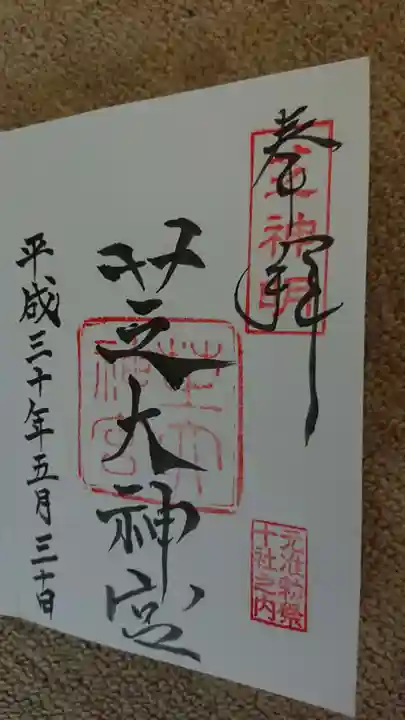 奉拝
芝神明
芝大神宮
芝大
神宮
元准勅祭
十社之内
平成三十年五月三十日